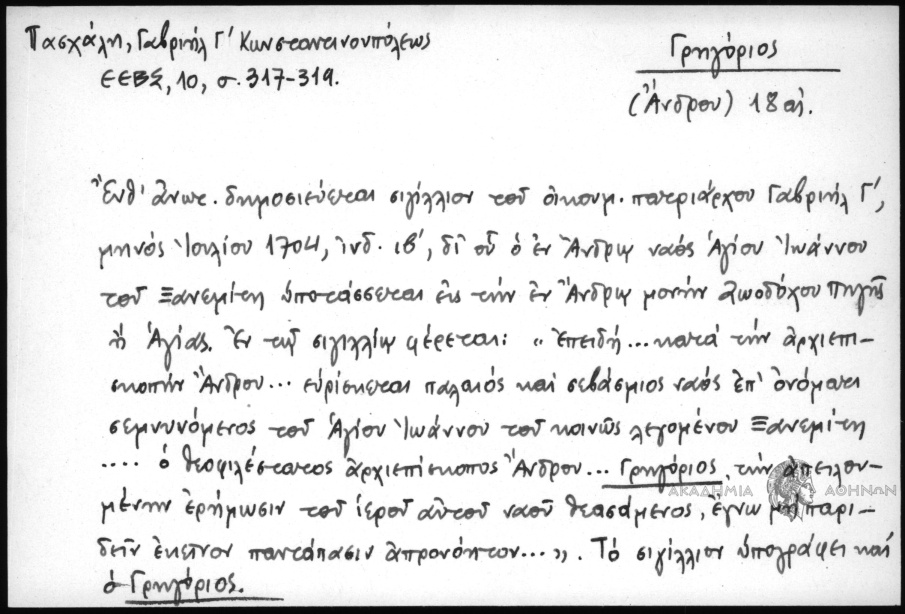 Πασχάλη, Γαβριήλ Γ' Κωνσταντινουπόλεως
ΕΕΒΣ, 10, σ. 317-319.
Γρηγόριος
(Ἄνδρου) 18 αἰ.
Ἔνθ' ἄνωτ. δημοσιεύεται σιγίλλιον τοῦ οἰκουμ. πατριάρχου Γαβριήλ Γ',
μηνός Ἰουλίου 1704, ἰνδ. ιβ', δι' οὗ ὁ ἐν Ἄνδρῳ ναός Ἁγίου Ἰωάννου
τοῦ Ξανεμίτη ὑποτάσσεται εἰς τήν ἐν Ἄνδρῳ μονήν Ζωοδόχου Πηγῆς
ἤ Ἁγίας. Ἐν τῷ σιγιλλίῳ φέρεται: "ἐπειδή... κατά τήν ἀρχιεπι-
σκοπήν Ἄνδρου... εὑρίσκεται παλαιός καί σεβάσμιος ναός ἐπ' ὀνόματι
σεμνυνόμενος τοῦ Ἁγίου Ἰωάννου τοῦ κοινῶς λεγομένου Ξανεμίτη
.... ὁ θεοφιλέστατος ἀρχιεπίσκοπος Ἄνδρου... Γρηγόριος, τήν ἀπειλου-
μένην ἐρήμωσιν τοῦ ἱεροῦ αὐτοῦ ναοῦ θεασάμενος, ἔγνω μή παρι-
δεῖν ἐκεῖνον παντάπασιν ἀπρονόητον...». Τό σιγίλλιον ὑπογράφει καί
ὁ Γρηγόριος.
ΑΚΑΔΗΜΙΑ ΑΘΗΝΩΝ